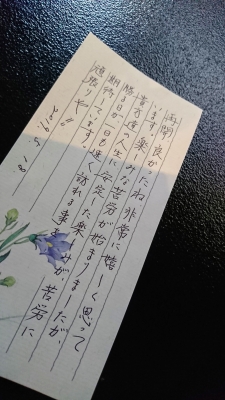 再開、良かったね 非常に嬉しく思って
います。楽しみな苦労が始まりましたが、
貴方達の人生に安定した楽しみが、苦労に
勝る日が一日も速く訪れる事を
期待しています。
頑張りや!!